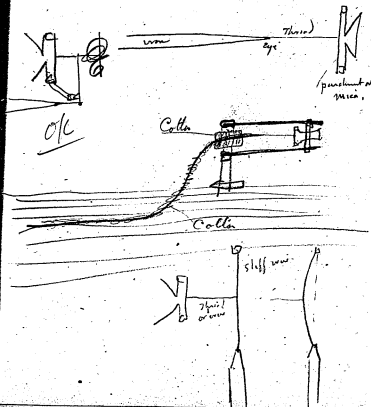 wire
Thread
Eye
parchment or
mica.
O/C
Cotton
Cotton
stiff wire
Thread
or wire